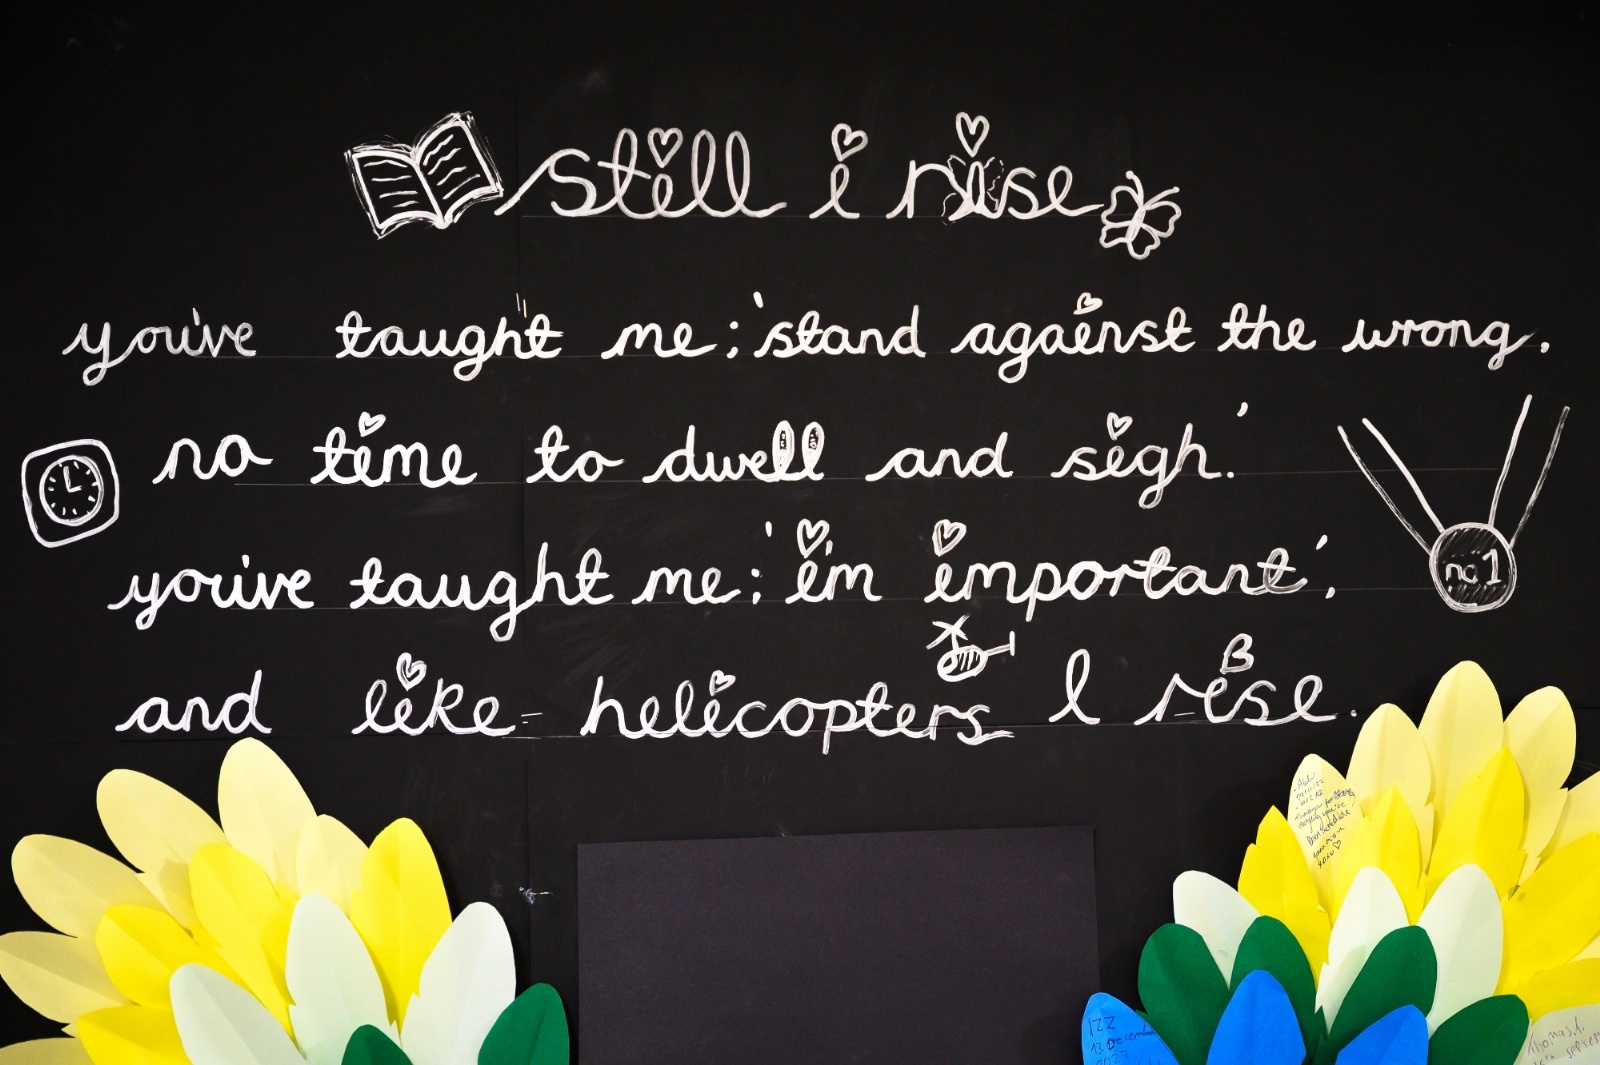 still i rise
you've taught me; 'stand against the wrong.
no time to dwell and sigh.'
no 1
you've taught me: 'i'm important',
and like helicopters I rise.
IZZ
13 December
2022
Thomas.A.